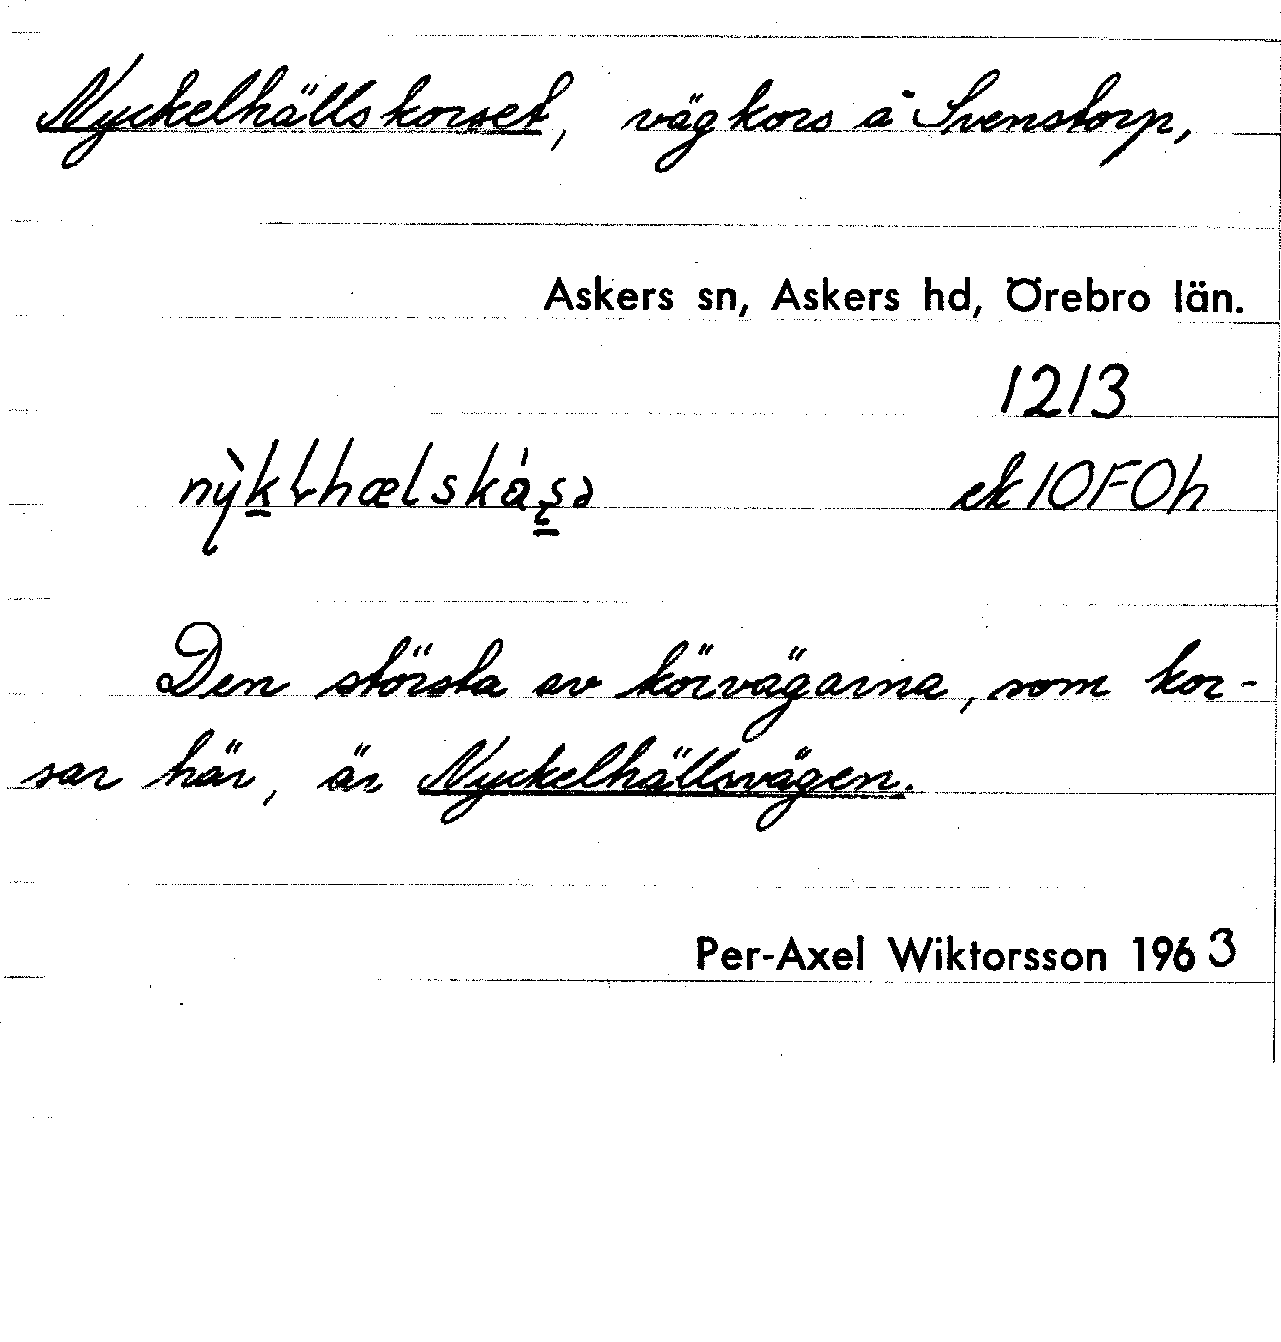 Nyckelhällskorset, vägkors å Svenstorp,
Askers sn, Askers hd, Örebro län.
1213
ek 10F0h
Den största av körvägarna, som kor-
sar här, är Nyckelhällsvägen.
Per-Axel Wiktorsson 1963